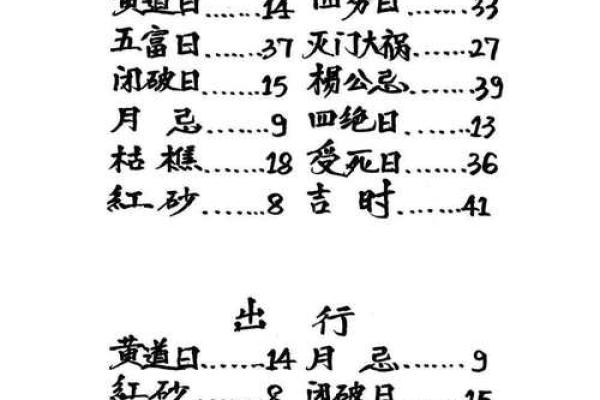 黄道日......14 四穷日......33
五富日......37 灭门大祸......27
闭破日......15 楊公忌......39
月 忌.......9 四绝日......13
枯樵......18 受死日......36
紅砂......8 吉时......41
出 行
黄道日......14 月 忌.......9
紅砂......8 闭破日......15